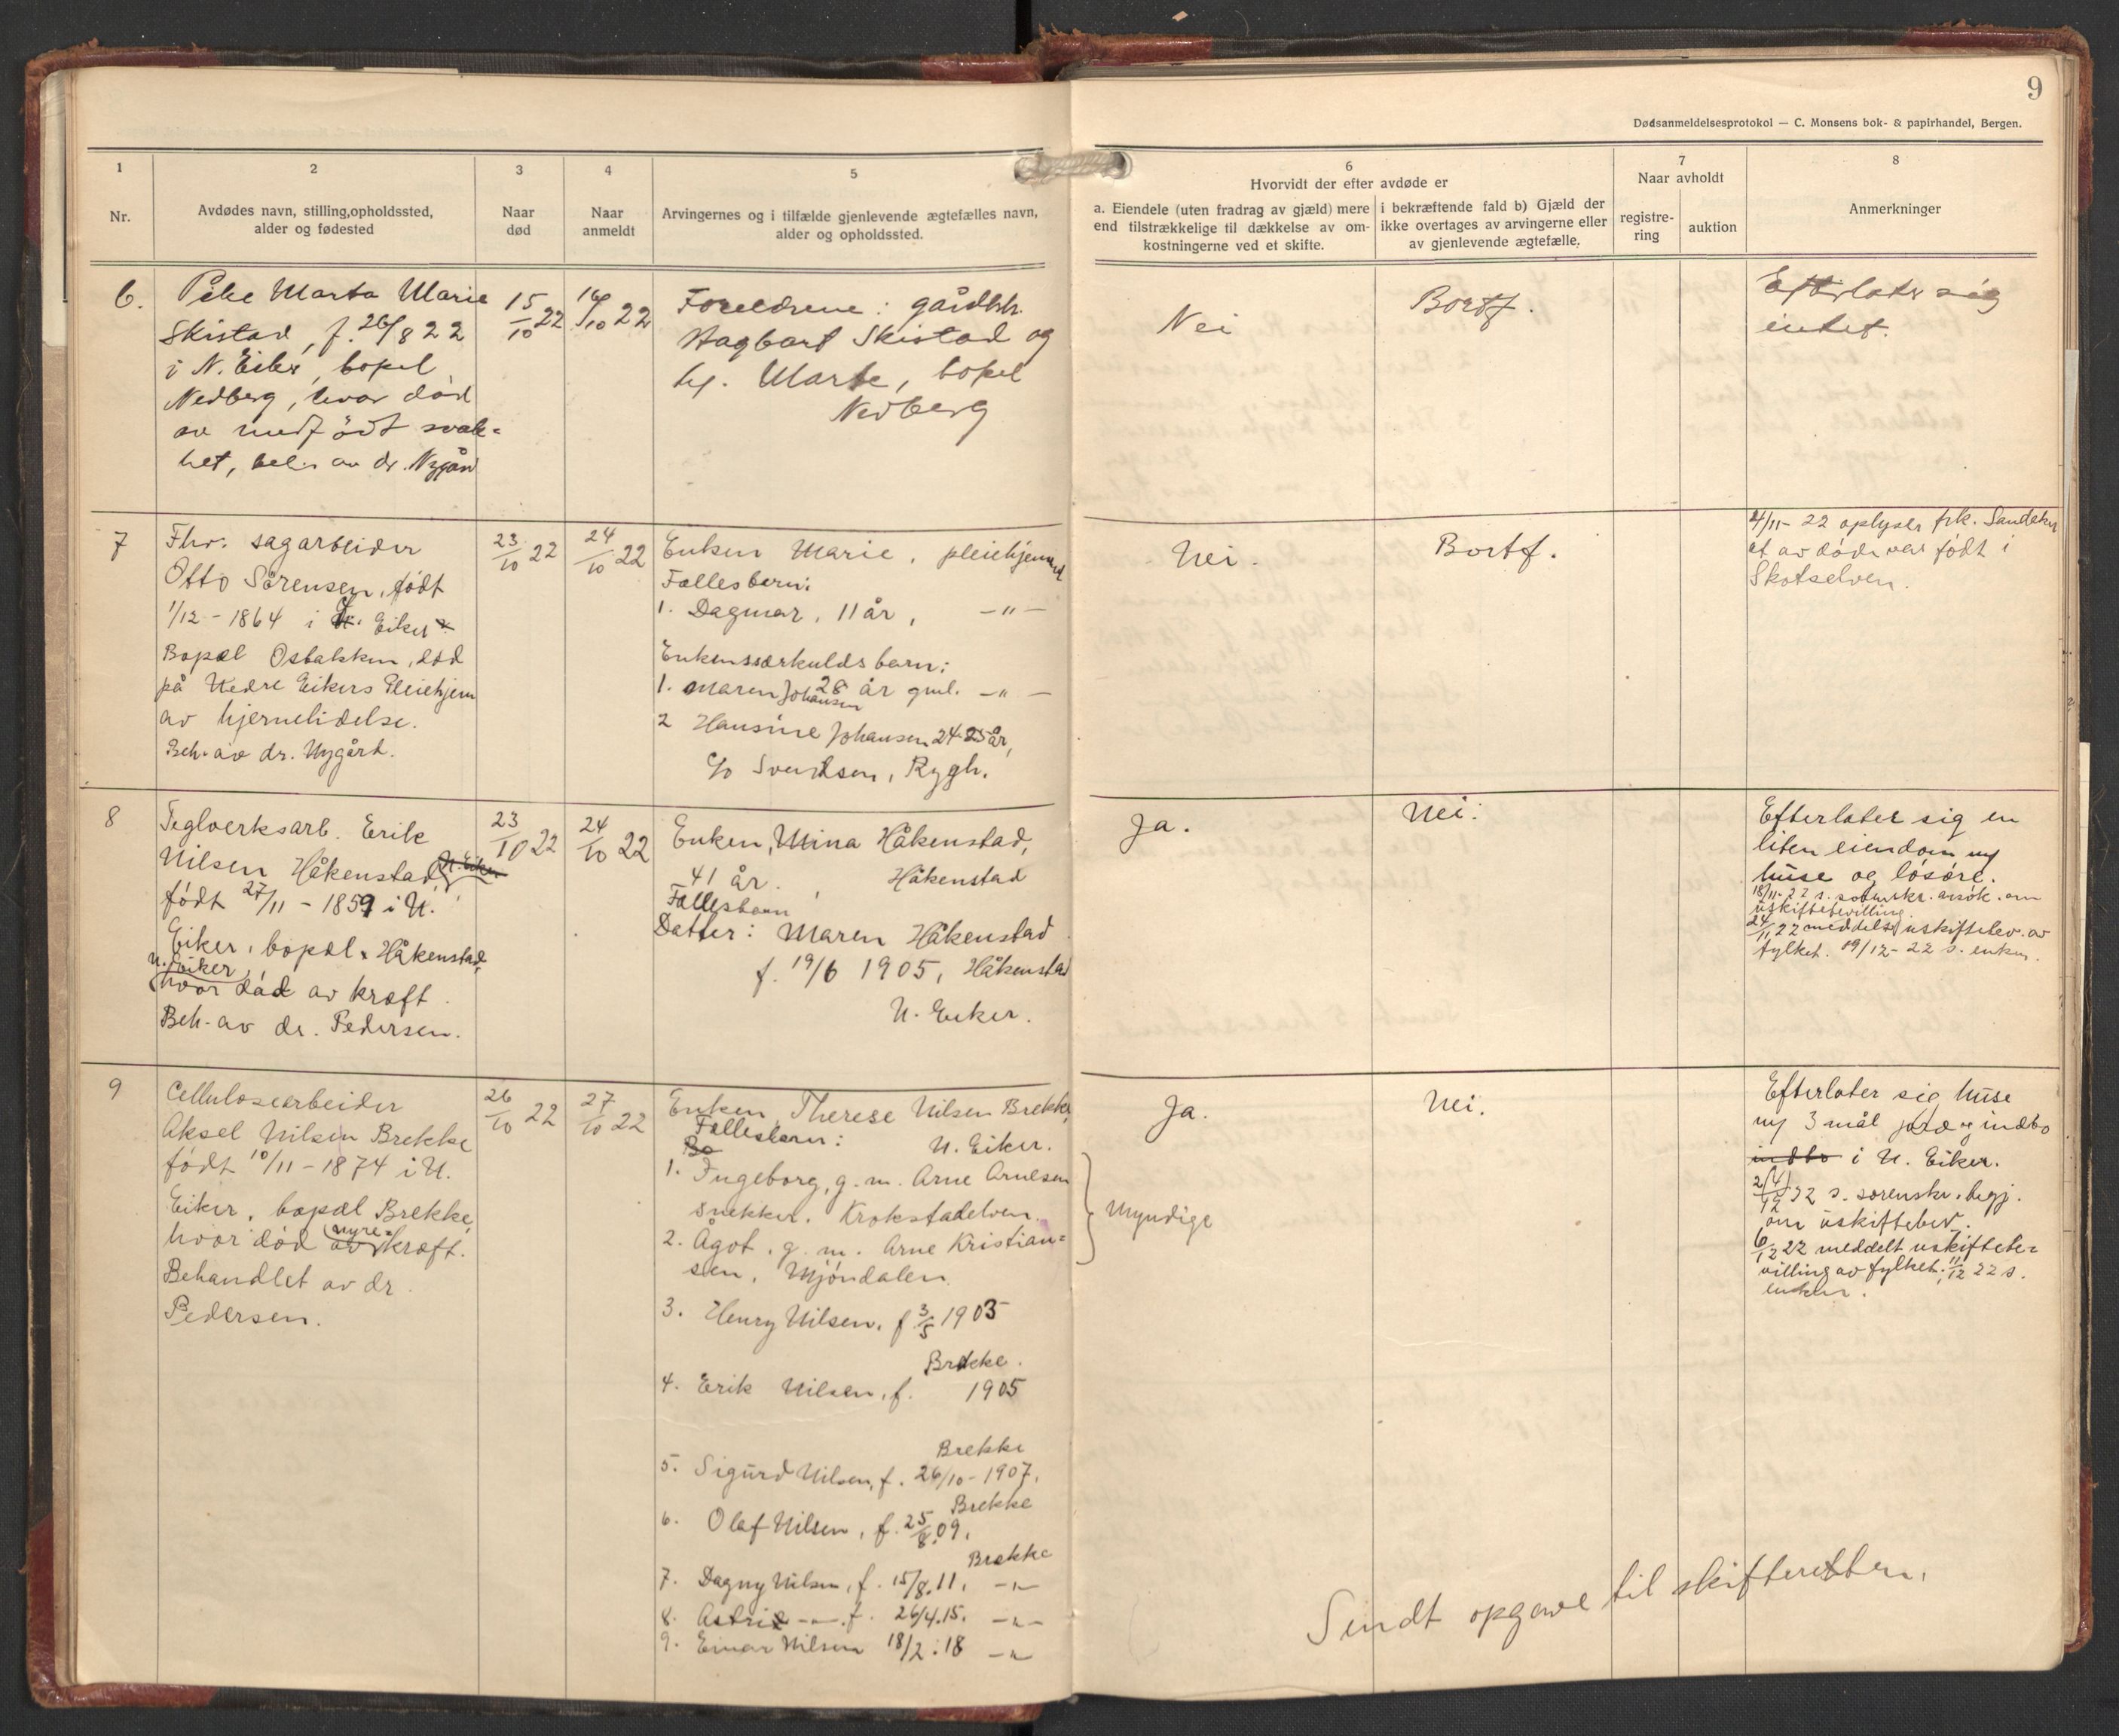 9
Dødsanmeldelsesprotokol — C. Monsens bok- & papirhandel, Bergen.
1
Nr.
2
Avdødes navn, stilling,opholdssted,
alder og fødested
3
Naar
død
4
Naar
anmeldt
5
Arvingernes og i tilfælde gjenlevende ægtefælles navn,
alder og opholdssted.
6
Hvorvidt der efter avdøde er
a. Eiendele (uten fradrag av gjæld) mere
end tilstrækkelige til dækkelse av om-
kostningerne ved et skifte.
i bekræftende fald b) Gjæld der
ikke overtages av arvingerne eller
av gjenlevende ægtefælle.
7
Naar avholdt
registre-
ring
auktion
8
Anmerkninger
6.
Pike Marta Marie
Skistad, f. 26/8 22
i N. Eiker, bopel
Nedberg, hvor død
av medfödt svak=
het, beh. av dr. Nygård
15/10 22
16/10 22
Foreldrene: gårdbr.
Hagbart Skistad og
h. Marte, bopel
Nedberg
Nei
Bortf.
Efterlater sig
intet.
7
Fhv. sagarbeider
Otto Sörensen, født
1/12 - 1864 i Ø. Eiker
Bopæl Osbakken, død
på Nedre Eikers Pleiehjem
av hjernelidelse.
Beh. av dr. Nygård.
23/10 22
24/10 22
Enken Marie, pleiehjemmet
Fællesbarn:
1. Dagmar, 11 år, — " —
Enkens særkuldsbarn:
1. Maren Johansen 28 år gml. — " —
2 Hansine Johansen 24-25 år,
c/o Svendsen, Rygh.
Nei.
Bortf.
4/11 - 22 oplyser frk.
at avdøde var født i
Skotselven.
8
Teglverksarb. Erik
Nilsen Håkenstad, N. Eiker
født 27/11 - 1859 i N.
Eiker, bopæl Håkenstad,
N. Eiker,
hvor död av kræft.
Beh. av dr. Pedersen.
23/10 22
24/10 22
Enken, Mina Håkenstad,
41 år. Håkenstad
Fællesbarn
Datter: Maren Håkenstad
f. 19/6 1905, Håkenstad
N. Eiker.
Ja.
Nei.
Efterlater sig en
liten eiendom m/
huse og løsøre.
18/11-22 s. sorenskr. ansök. om
uskiftebevilling.
24/11 22 meddelt uskiftebev. av
fylket. 19/12-22 s. enken.
9
Cellulosearbeider
Aksel Nilsen Brekke
født 10/11 - 1874 i N.
Eiker, bopæl Brekke,
hvor död av nyre=kræft.
Behandlet av dr.
Pedersen.
26/10 22
27/10 22
Enken, Therese Nilsen Brekke,
Fællesbarn: N. Eiker.
Bo
1. Ingeborg, g. m. Arne Arnesen
snekker. Krokstadelven.
2. Ågot, g. m. Arne Kristian=
sen, Mjöndalen.
3. Henry Nilsen, f. 3/5 1903
Brekke.
4. Erik Nilsen, f. 1905
Brekke
5. Sigurd Nilsen, f. 26/10 - 1907.
Brekke
6. Olaf Nilsen, f. 25/8.09.
Brekke
7. Dagny Nilsen, f. 15/8.11. — " —
8. Astrid — " — f. 26/4.15. — " —
9. Einar Nilsen 18/2.18 — " —
Myndige
Ja.
Nei.
Efterlater sig huse
m/ 3 mål jord og indbo
indbo i N. Eiker.
2(4)/12 22 s. sorenskr. begj.
om uskiftebev.
6/12 22 meddelt uskiftebe=
villing av fylket. 11/12 22 s.
enken.
Sendt opgave til skifteretten.